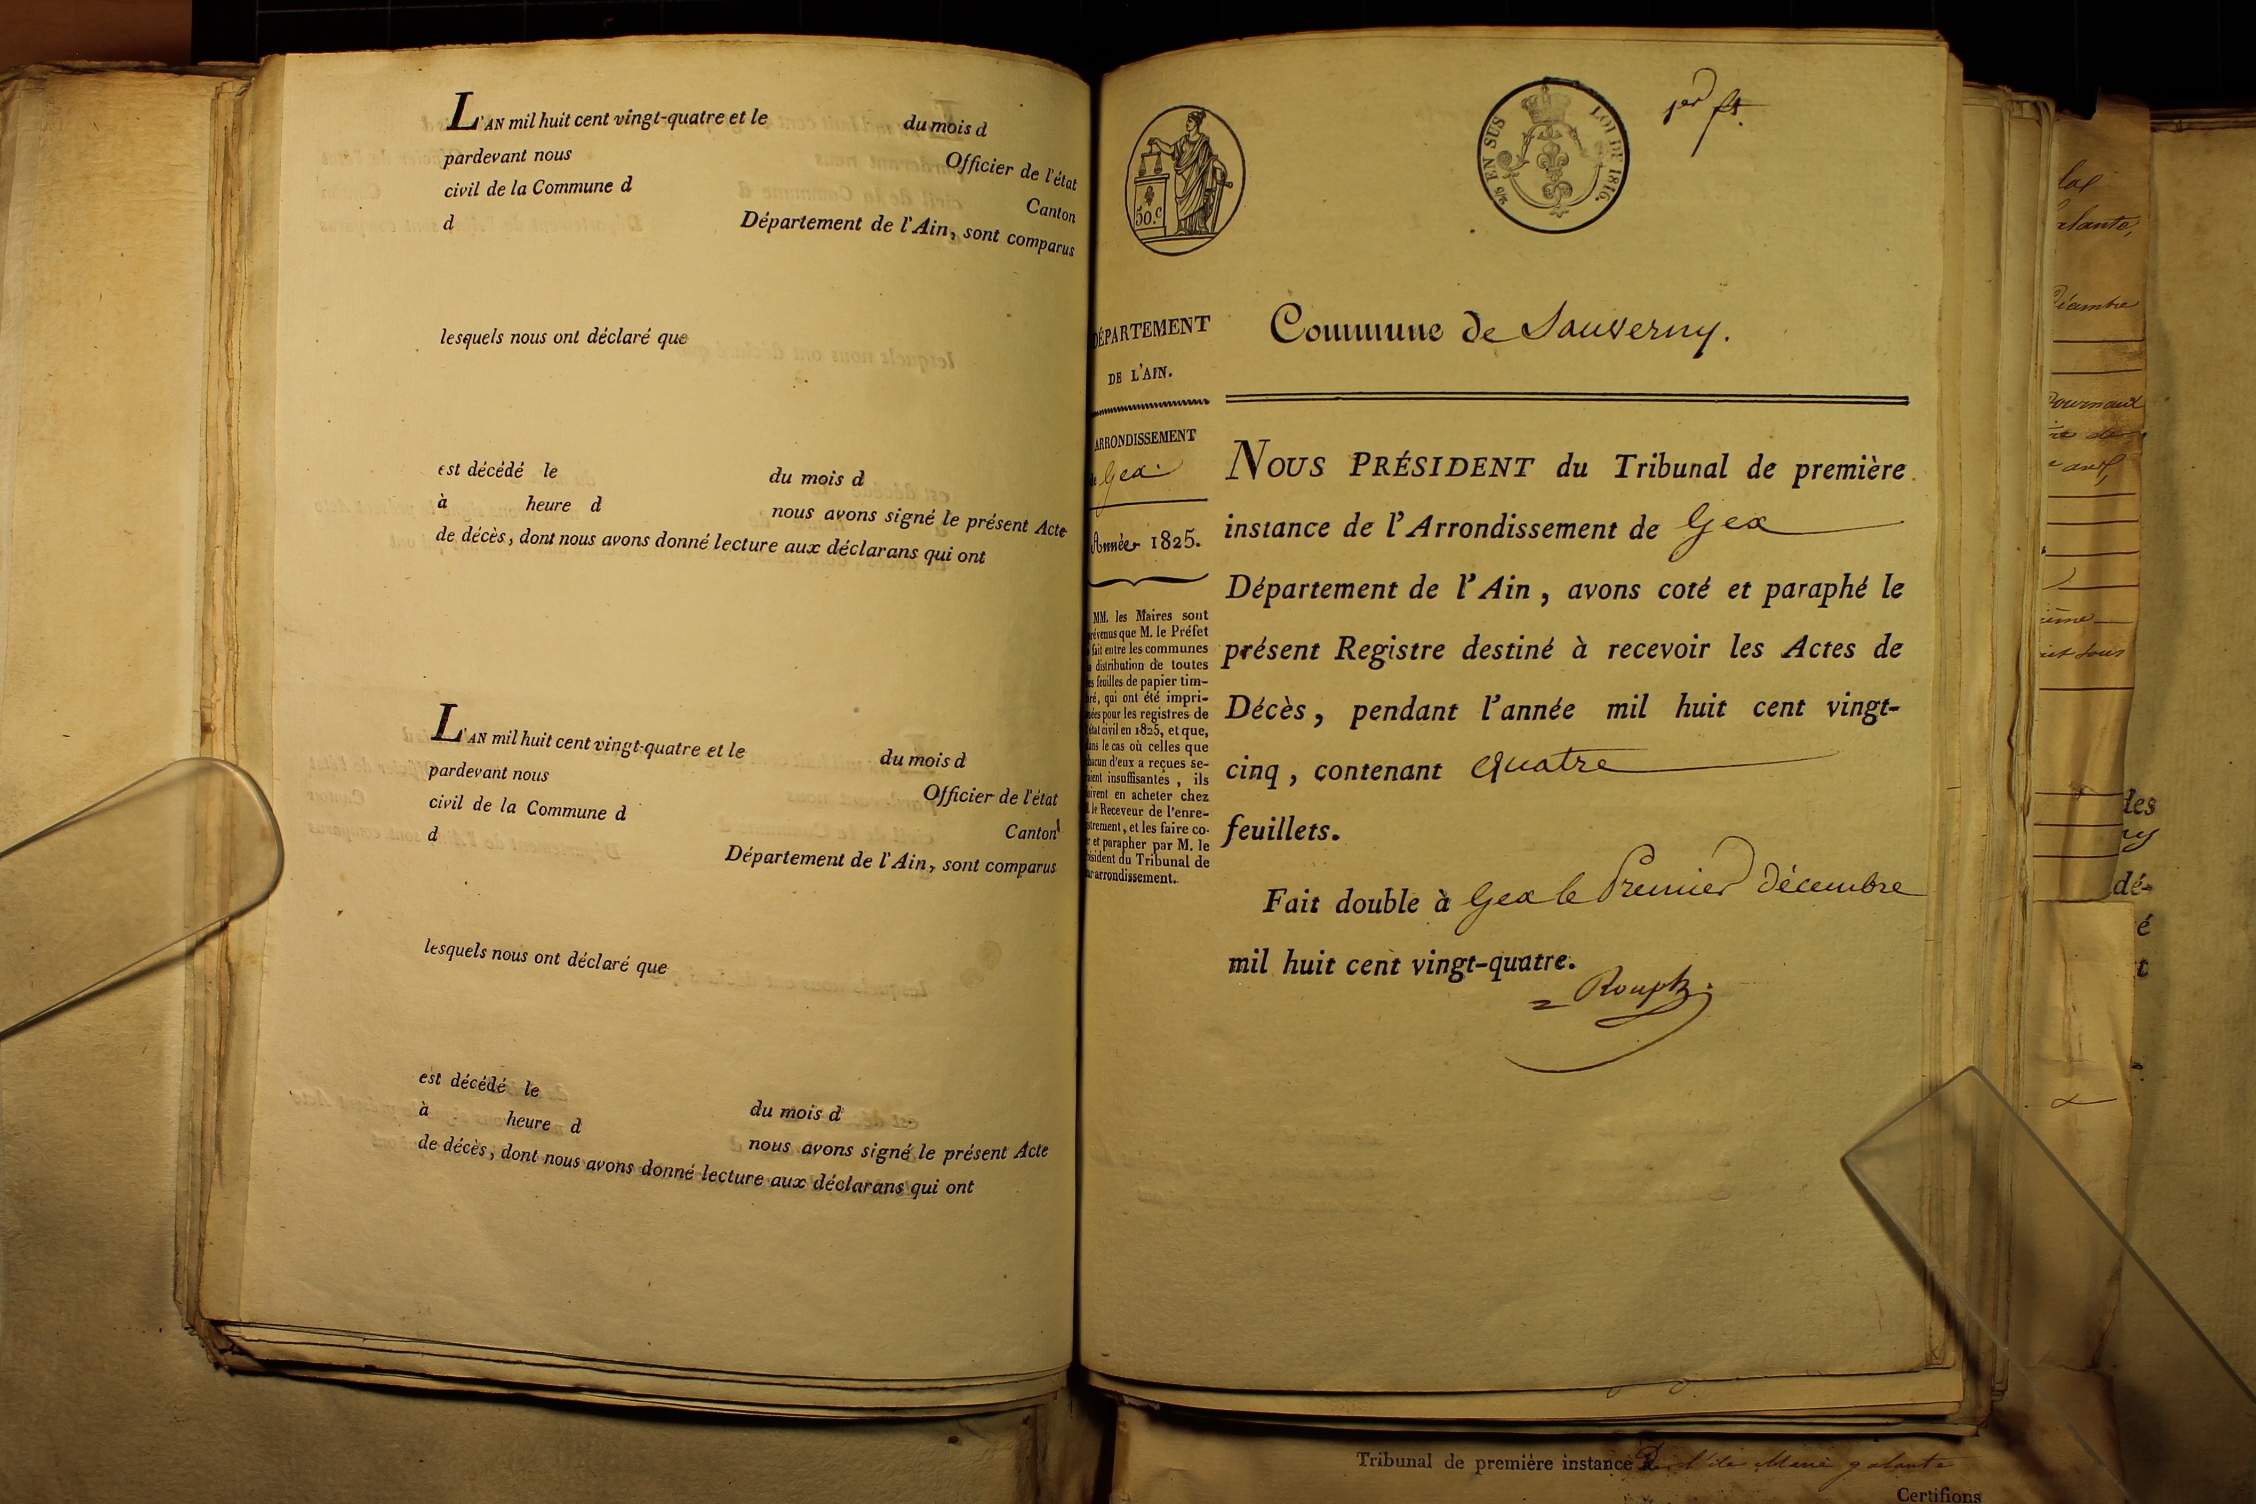 L'AN mil huit cent vingt-quatre et le du mois d
pardevant nous Officier de l'état
civil de la Commune d Canton
d Département de l'Ain, sont comparus
lesquels nous ont déclaré que
est décédé le du mois d
à heure d nous avons signé le présent Acte
de décès, dont nous avons donné lecture aux déclarans qui ont
L'AN mil huit cent vingt-quatre et le du mois d
pardevant nous Officier de l'état
civil de la Commune d Canton
d Département de l'Ain, sont comparus
lesquels nous ont déclaré que
est décédé le du mois d
à heure d nous avons signé le présent Acte
de décès, dont nous avons donné lecture aux déclarans qui ont
50.c
EN SUS LOI DE 1816.
1er ft.
DÉPARTEMENT
DE L'AIN.
ARRONDISSEMENT
de Gex.
Année 1825.
MM. les Maires sont
prévenus que M. le Préfet
a fait entre les communes
la distribution de toutes
les feuilles de papier tim-
bré, qui ont été impri-
mées pour les registres de
l'état civil en 1825, et que,
dans le cas où celles que
chacun d'eux a reçues se-
raient insuffisantes, ils
doivent en acheter chez
M. le Receveur de l'enre-
gistrement, et les faire co-
ter et parapher par M. le
Président du Tribunal de
leur arrondissement.
Commune de Sauverny.
NOUS PRÉSIDENT du Tribunal de première
instance de l'Arrondissement de Gex
Département de l'Ain, avons coté et paraphé le
présent Registre destiné à recevoir les Actes de
Décès, pendant l'année mil huit cent vingt-
cinq, contenant quatre
feuillets.
Fait double à Gex le Premier Décembre
mil huit cent vingt-quatre.
Rouph
des
dé-
é
t
Tribunal de première instance
Certifions